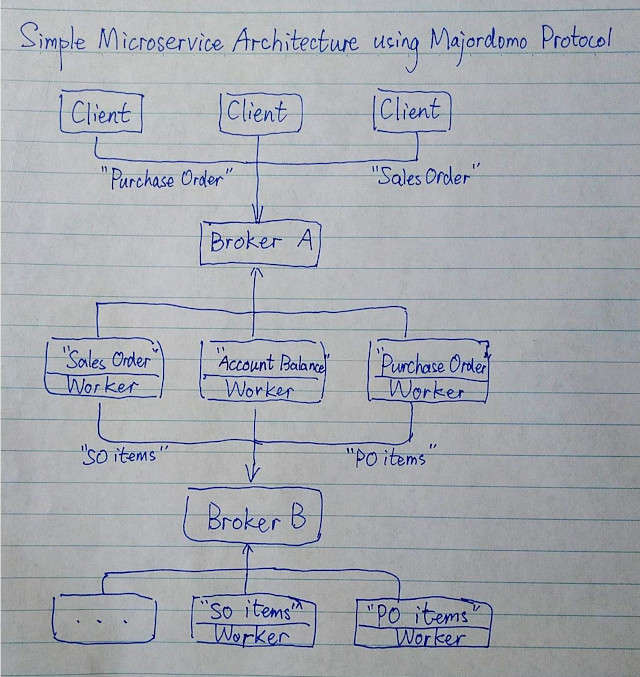 Simple Microservice Architecture using Majordomo Protocol
Client Client Client
"Purchase Order" "Sales Order"
Broker A
"Sales Order" "Account Balance" "Purchase Order"
Worker Worker Worker
"SO items" "PO items"
Broker B
... "SO items" "PO items"
Worker Worker